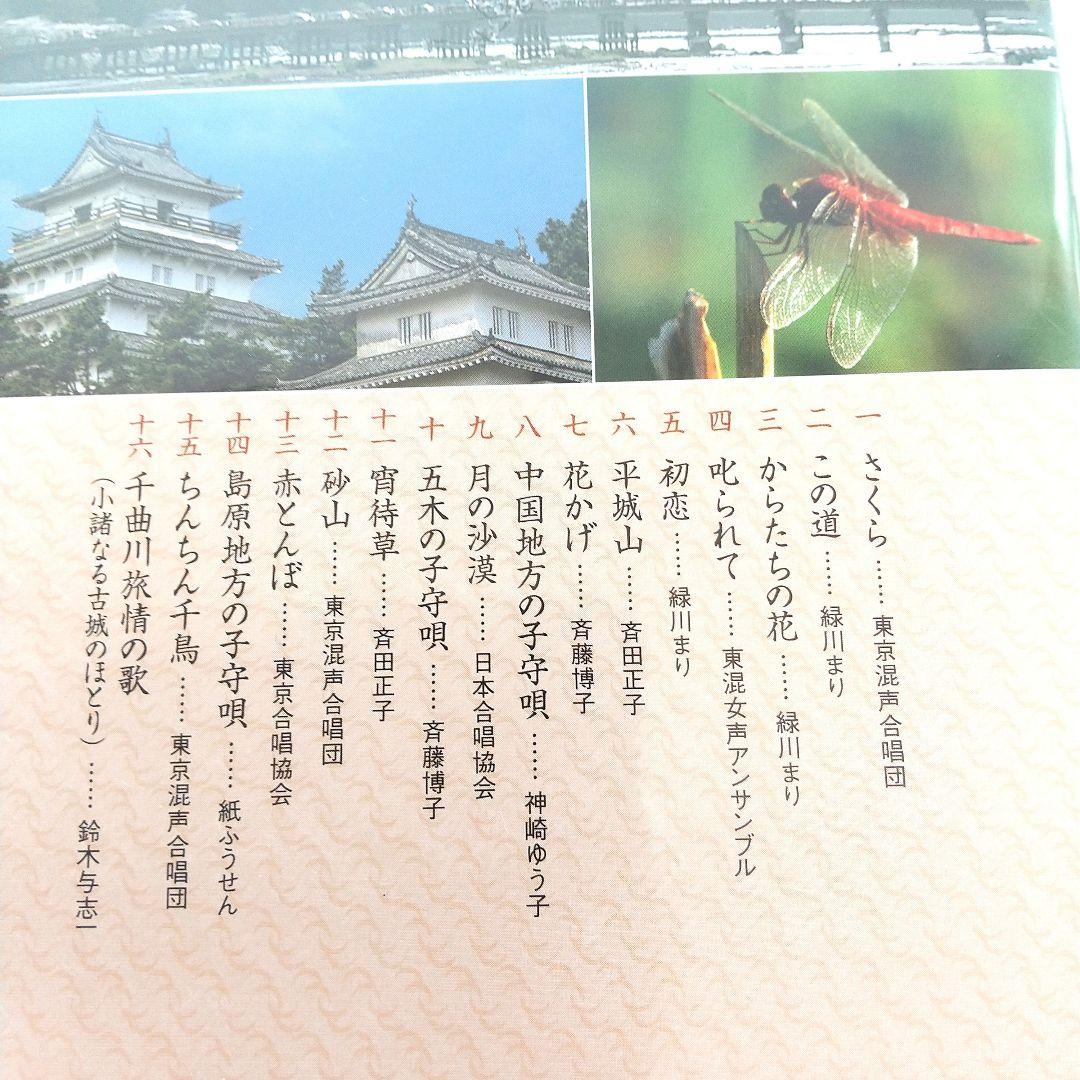 一 さくら …… 東京混声合唱団
二 この道 …… 緑川まり
三 からたちの花 …… 緑川まり
四 叱られて …… 東混女声アンサンブル
五 初恋 …… 緑川まり
六 平城山 …… 斉田正子
七 花かげ …… 斉藤博子
八 中国地方の子守唄 …… 神崎ゆう子
九 月の沙漠 …… 日本合唱協会
十 五木の子守唄 …… 斉藤博子
十一 宵待草 …… 斉田正子
十二 砂山 …… 東京混声合唱団
十三 赤とんぼ …… 東京合唱協会
十四 島原地方の子守唄 …… 紙ふうせん
十五 ちんちん千鳥 …… 東京混声合唱団
十六 千曲川旅情の歌
(小諸なる古城のほとり) …… 鈴木与志一